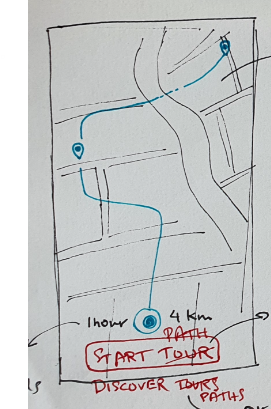 1hour 4 km
PATH
START TOUR
DISCOVER TOURS
PATHS